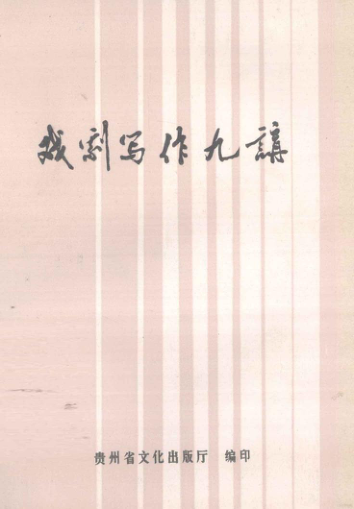 戏剧写作九講
贵州省文化出版厅 编印